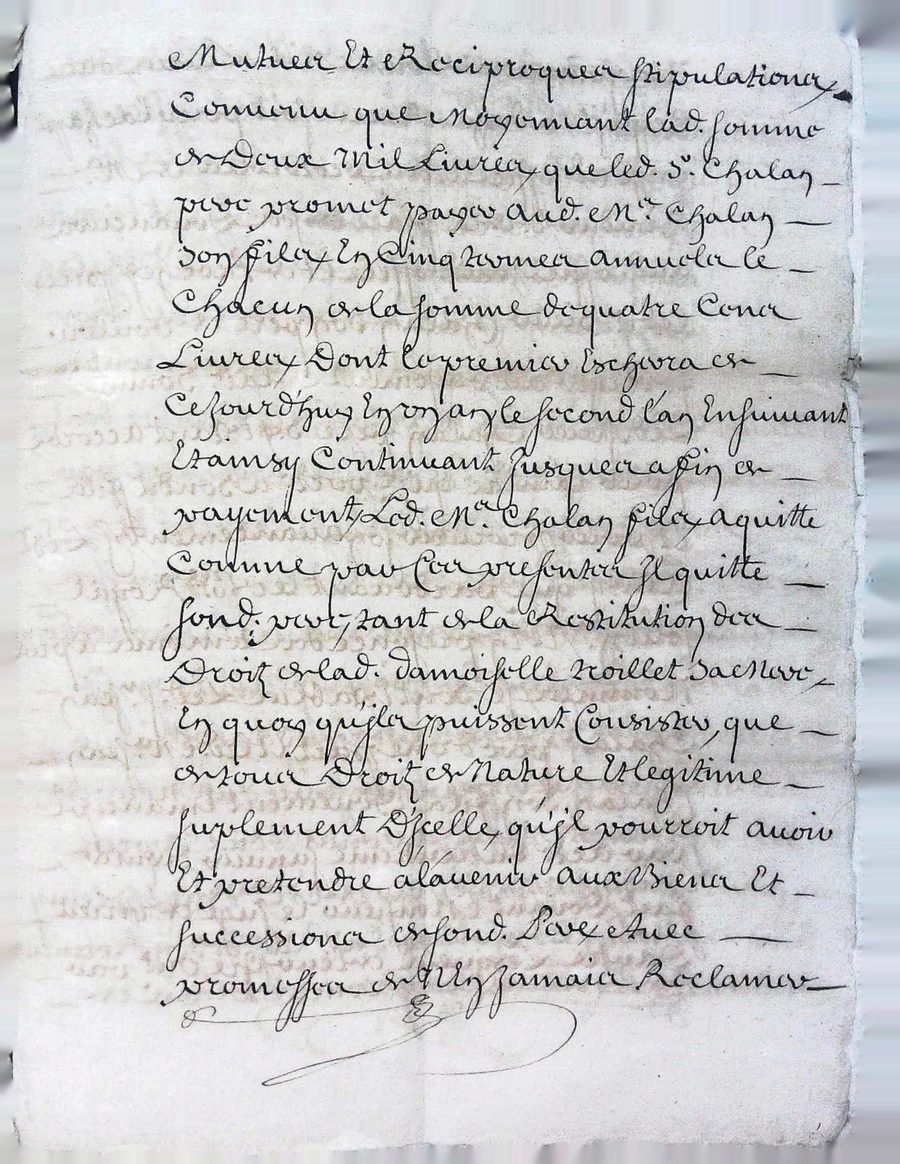 Mutues Et Reciproques stipulations,
Convenu que Moyennant lad. somme
de Deux Mil Livres, que led. Sr. Chalan
pere promet payer aud. Me. Chalan
son fils, En Cinq termes annuels le
Chacun de la somme de quatre Cens
Livres, Dont le premier Eschera de
Cejourd'huy En un an, le second l'an Ensuivant
Et ainsy Continuant Jusques a fin de
payement, Led. Me. Chalan fils, a quitte
Comme par Ces presentes Il quitte
sond. pere, tant de la Restitution des
Droitz de lad. damoiselle Noillet sa Mere,
En quoy qu'jls puissent Consister, que
de tous Droitz de Nature Et legitime
suplement D'jcelle, qu'jl pourroit avoir
Et pretendre a l'avenir aux Biens Et
successions de sond. Pere, avec
promesses de N'En Jamais Reclamer